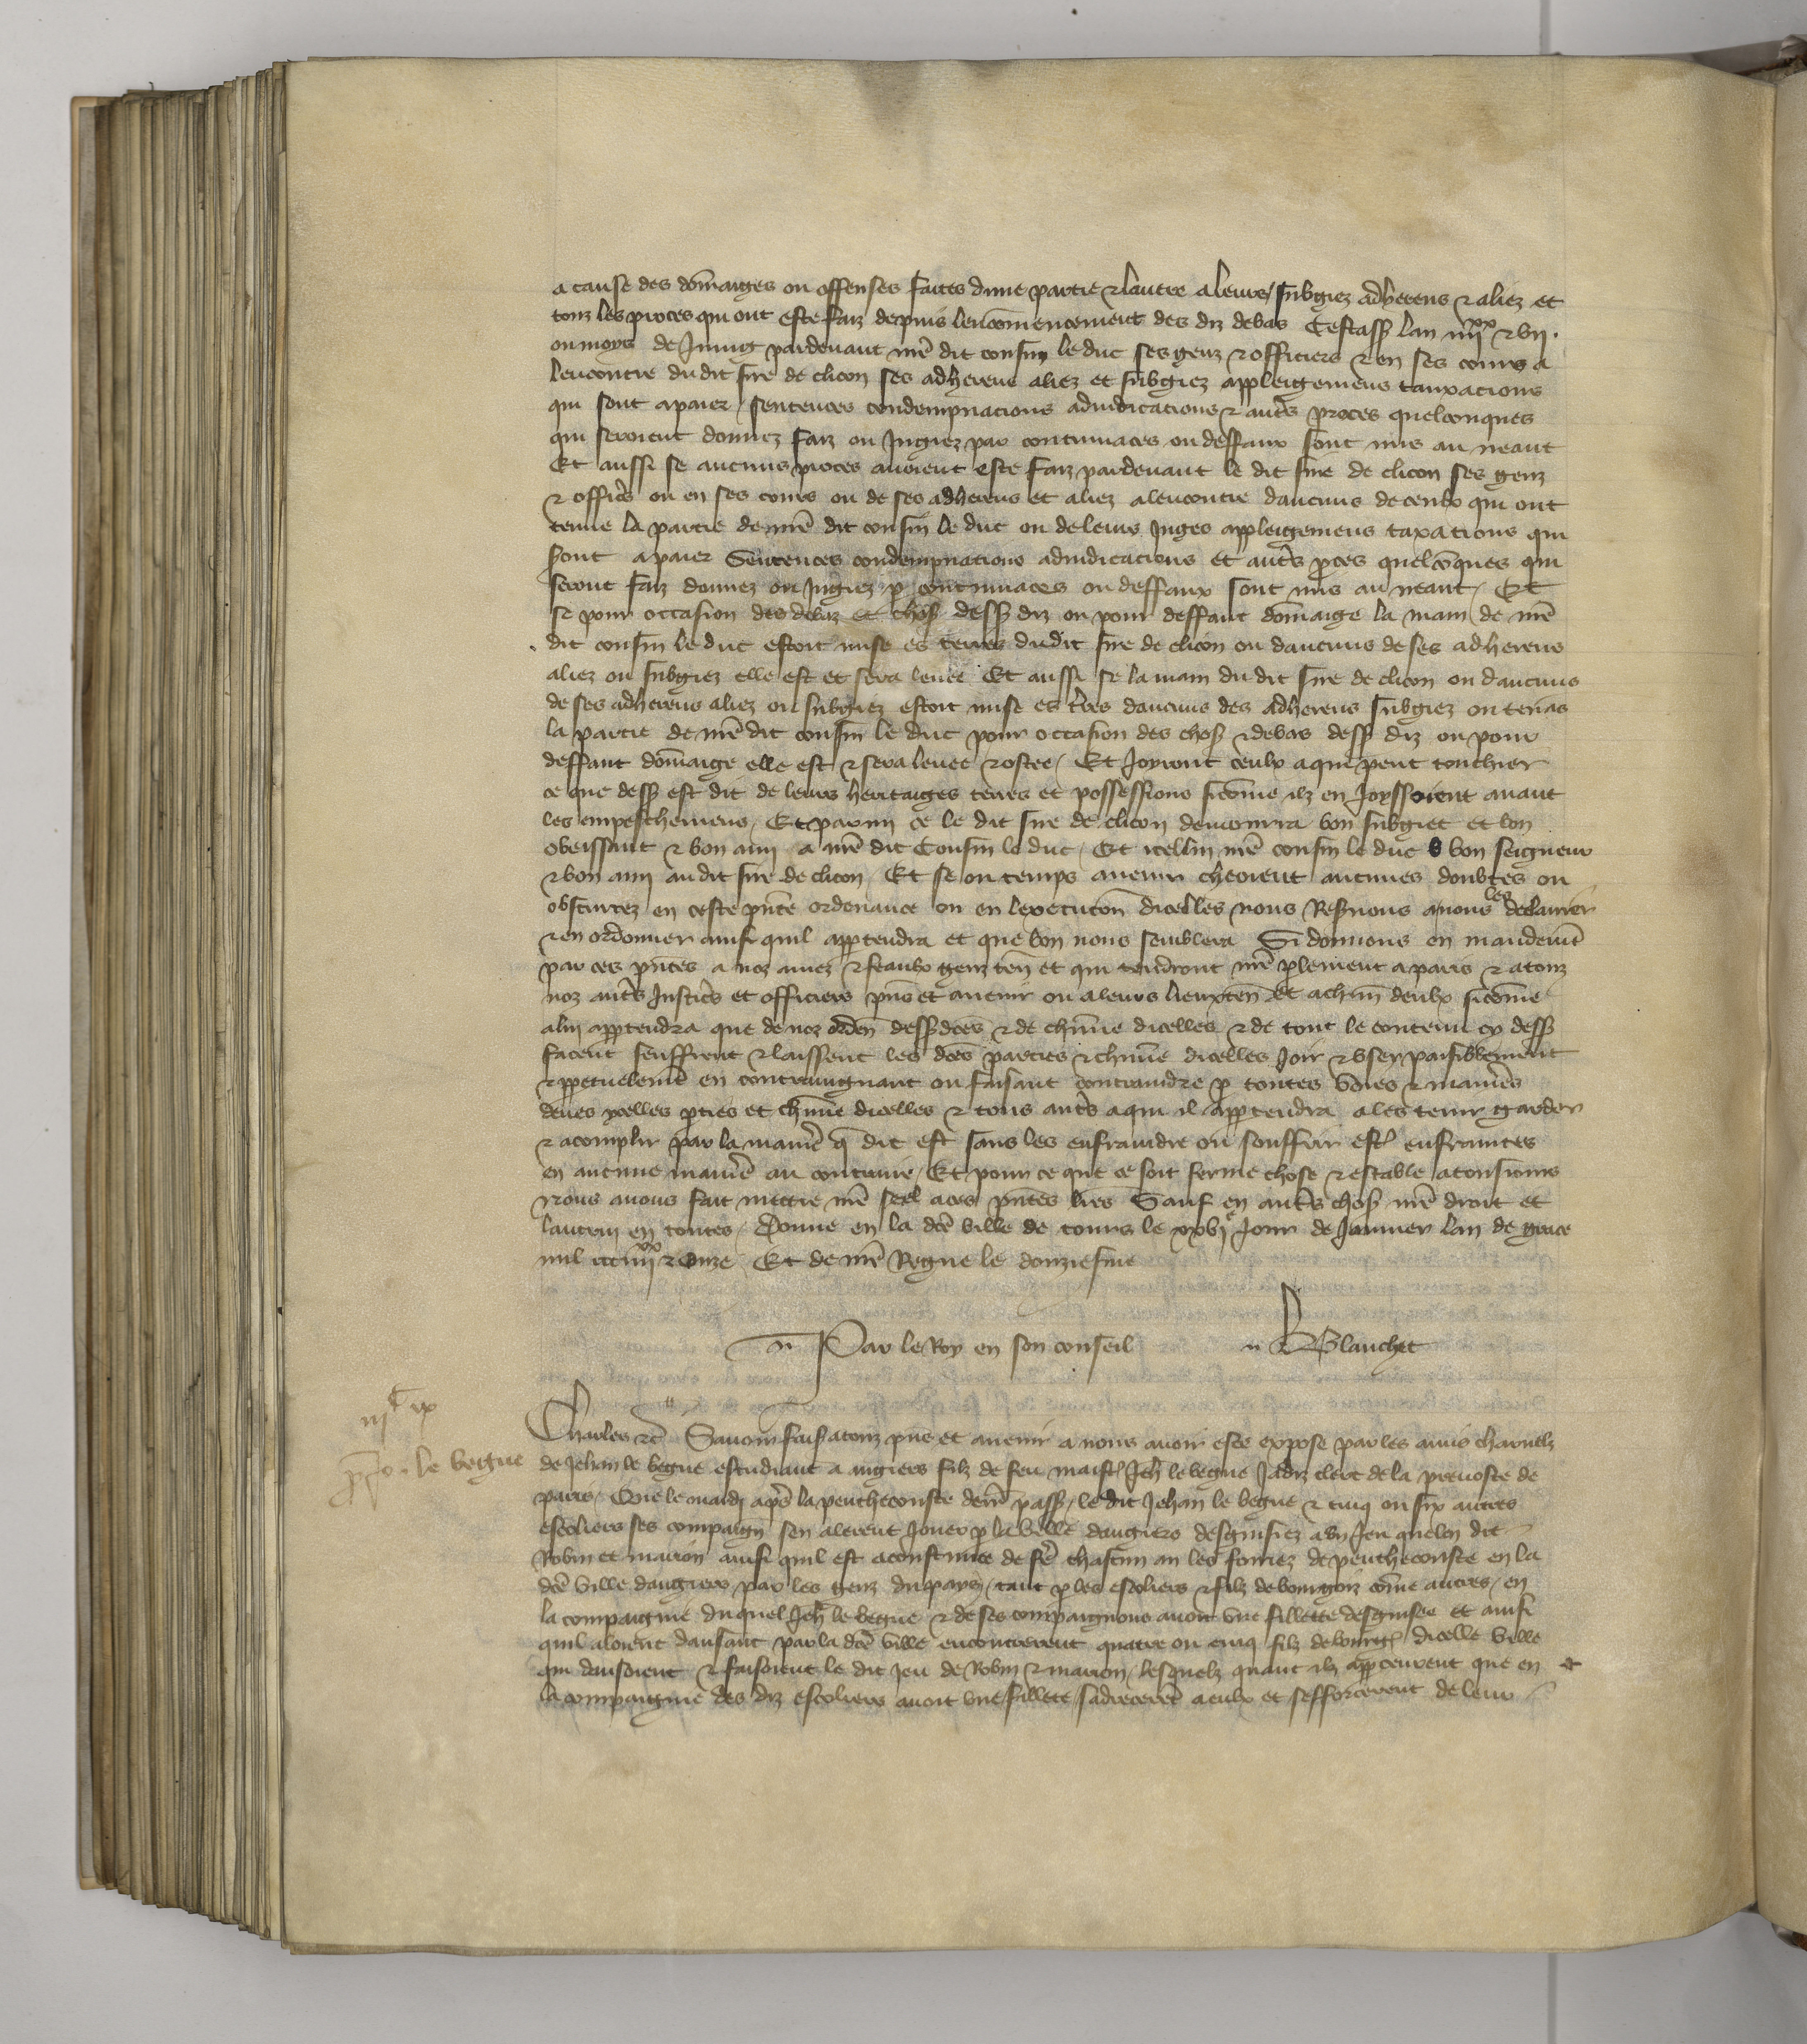 a cause des dom̄aiges ou offenses faites dune partie ⁊ lautre a leurs subgiez adherens ⁊ aliez et
touz les proces qui ont este faiz depuis lencom̄encement des diz debas Cestass lan iiijxx ⁊ vij.
ou moys de Juing pardeuant nr̄e dit cousin le duc ses genz ⁊ officiers ⁊ en ses cours a
lencontre dudit sire de clicon ses adherens aliez et subgiez appleigemens tauxacions
qui sont a paier / sentences condempnacions adiudicacions ⁊ autr̄s proces quelconques
qui seroient donnez faiz ou Jugiez par contumaces ou deffaux sont mis au neant
Et aussi se aucuns proces auoient este faiz pardeuant le dit sire de clicon ses genz
⁊ offic̄rs ou en ses cours ou de ses adherens et aliez alencontre daucuns de ceulx qui ont
tenue la partie de nr̄e dit cousin le duc ou de leurs Juges appleigemens taxacions qui
sont a paier Sentences condempnacions adiudicacions et autr̄s ꝓces quelcōques qui
seront faiz donnez ou Jugiez ꝑ contumaces ou deffaux sont mis au neant / Et
se pour occasion des debaz et chos̄ dess̄ diz ou pour deffaut dom̄aige la main de nr̄e
dit cousin le duc estoit mise es terres dudit sire de clicon ou daucuns de ses adherens
aliez ou subgiez elle est et sera leuee Et aussi se la main du dit sire de clicon ou daucuns
de ses adherens aliez ou subgiez estoit mise es t̄res daucuns des adherens subgiez ou tenās
la partie de nr̄e dit cousin le duc pour occasion des chos̄ ⁊ debas dess̄ diz ou pour
deffaut dom̄aige elle est ⁊ sera leuee ⁊ ostee / Et Joyront ceulx a qui peut touchier
ce que dess̄ est dit de leurs heritaiges terres et possessions sicōme ilz en Joyssoient auant
les empeschemens / Et parmi ce le dit sire de clicon demourra bon subgiet et bon
obeissant ⁊ bon ami a nr̄e dit Cousin le duc / Et icellui nr̄e cousin le duc bon seigneur
⁊ bon ami audit sire de clicon / Et se ou temps auenir cheoient aucunes doubtes ou
obscurtez en ceste pn̄te ordenance ou en lexecucōn dicelles nous Res̄uons a nous les declairier
⁊ en ordonner ainsi quil appartendra et que bon nous semblera Si donnons en mandemēt
par ces pn̄tes a noz amez ⁊ feaulx genz ten̄ et qui tendront nr̄e ꝑlement a paris ⁊ a touz
noz autr̄s Justic̄rs et officiers pn̄s et auenir ou a leurs lieuxten̄ et a chūn deulx sicōme
a lui appartendra que de noz orden̄ dess̄ dc̄es ⁊ de chūne dicelles ⁊ de tout le contenu cy dess̄
facent seuffrent ⁊ laissent les dc̄es parties ⁊ chūne dicelles Joir ⁊ vser paisiblement
⁊ ꝑpetuelemēt en contraignant ou faisant contraindre ꝑ toutes voies ⁊ manier̄s
deues ycelles ꝑties et chūne dicelles ⁊ tous autr̄s a qui il appartendra a les tenir garder
⁊ acomplir par la manier̄e q̄ dit est sans les enfraindre ou souffrir estr̄ enfraintes
en aucune manier̄e au contraire / Et pour ce que ce soit ferme chose ⁊ estable a tousiours
Nous auons fait mettre nr̄e seel a ces pn̄tes lr̄es Sauf en autr̄s chos̄ nr̄e droit et
lautrui en toutes / Donne en la dc̄e ville de tours le xxvje Jour de Januier lan de grace
mil ccciiijxx ⁊ onze Et de nr̄e Regne le douziesme
Par le Roy en son conseil H Blanchet
iijC ix
ꝓ Jo. le begue
Charles ⁊c̄ Sauoir fais̄ a touz pn̄s et auenir a nous auoir este expose par les amis charnelz
de Jehan le begue estudiant a angiers filz de feu maistr̄ Jeh̄ le begue Jadiz clerc de la preuoste de
paris / Que le mardi apr̄s la penthecouste derr̄ pass̄ / le dit Jehan le begue ⁊ cinq ou six autres
escoliers ses compaign̄ sen alerent Jouer ꝑ la ville dangiers desguisiez a vn Jeu que lon dit
Robin et marion ainsi quil est acoustume de fr̄e chascun an les foiriez de penthecouste en la
dc̄e ville dangiers par les genz du pays / tant ꝑ les escoliers ⁊ filz de bourgois cōme autres / en
la compaignie duquel Jeh̄ le begue ⁊ de ses compaignons auoit vne fillette desguisee et ainsi
quil aloient dansant par la dc̄e ville encontrerent quatre ou cinq filz de bourḡ dicelle ville
qui dansoient ⁊ faisoient le dit Jeu de Robin ⁊ marion / lesquelz quant ilz apperceurent que en
la compaignie des diz escoliers auoit vne fillette / sadrecerēt a eulx et sefforcerent de leur